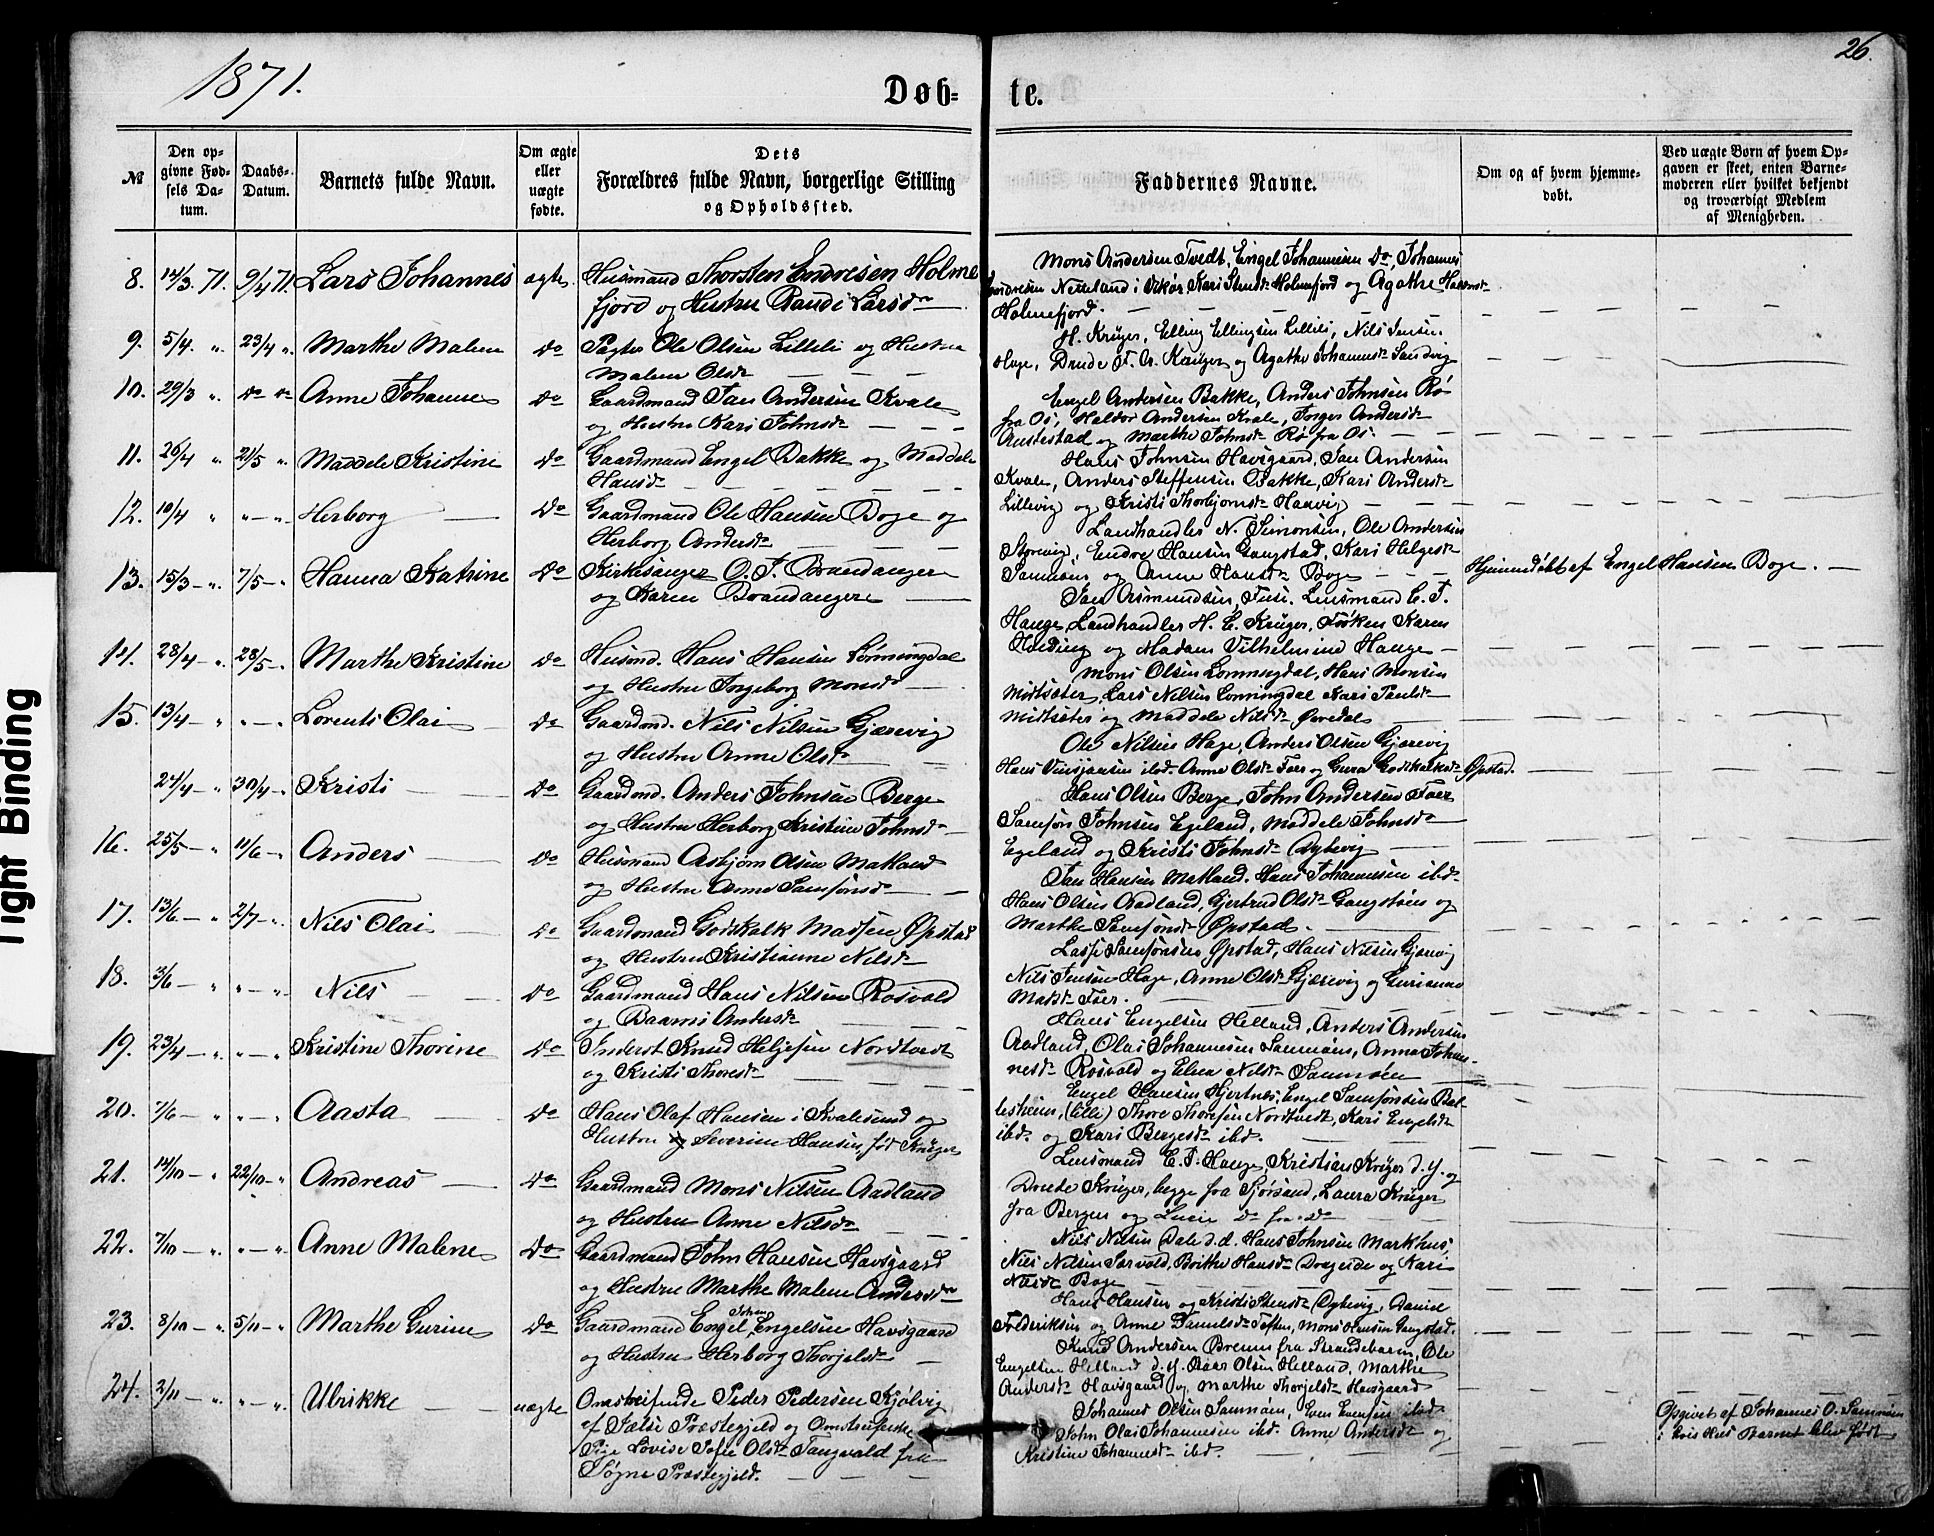 26.
1871.
Døb- te.
№
Den op-
givne Fød-
sels Da-
tum.
Daabs-
Datum.
Barnets fulde Navn.
Om ægte
eller
uægte
fødte.
Dets
Forældres fulde Navn, borgerlige Stilling
og Opholdssted.
Faddernes Navne.
Om og af hvem hjemme-
døbt.
Ved uægte Børn af hvem Op-
gaven er skeet, enten Barne-
moderen eller hvilket bekjendt
og troværdigt Medlem
af Menigheden.
8. 14/3 71. 9/4 71. Lars Johannes ægte. Husmand Thorsten Endresen Holme
fjord og Hustru Larsdr
Mons Andersen Tvedt, Engel Johannesen Do, Johannes
Netteland i Vikør, Kari Holmefjord og Agathe
Holmefjord.
9. 5/4 " 23/4 " Marthe Malene Do Ole Olsen Lilleli og Hustru
Malene Olsdr
H. Krüger, Elling Ellingsen Lilleli, Nils Jensen
Hage, Drude Krüger og Agathe Johannesdr Sandvig
10. 29/3 " Do Do Anne Johanne Do Gaardmand Jan Andersen Kvale
og Hustru Kari Johnsdr
Engel Andersen Bakke, Anders Johnsen Rø
fra Os, Haldor Andersen Kvale, Andersdr
Austestad og Marthe Johnsdr Rø fra Os.
11. 26/4 " 21/5 " Maddele Kristine Do Gaardmand Engel Bakke og Maddele
Hansdr
Hans Johnsen Havsgaard, Jan Andersen
Kvale, Anders Steffensen Bakke, Kari Andersdr
Lillevig og Kristi Thorbjørnsdr Haavig
12. 10/4 " " " Herborg Do Gaardmand Ole Hansen Boge og
Herborg Andersdr
Landhandler N. Simonsen, Ole Andersen
Endre Hansen Gangstad, Kari Helgesdr
Samnøen og Anne Hansdr Boge
Hjemmedøbt af Engel Hansen Boge.
13. 15/3 " 7/5 " Hanna Katrine Do Kirkesanger O. J. Brandanger
og Karen Brandanger
Jan Asmundsen, Fuse. Lensmand E. T.
Hauge, Landhandler H. E. Krüger, Frøken Karen
og Madam Vilhelmine Hauge
14. 28/4 " 28/5 " Marthe Kristine Do Husmd. Hans Hansen Lønningdal
og Hustru Ingeborg Monsdr
Mons Olsen Lønningdal, Hans Monsen
Midtsæter, Lars Nilsen Lønningdal Kari Paulsdr
Midtsæter og Maddele Nilsdr Øvredal
15. 13/4 " " " Lorents Olai Do Gaardmd. Nils Nilsen Gjærevig
og Hustru Anne Olsdr
Ole Nilsen Hage, Anders Olsen Gjærevig
Hans ibd. Anne Olsdr Foer og Guro Godskalksdr Øpstad.
24/4 " 30/4 " Kristi Do Gaardmd. Anders Johnsen Berge
og Hustru Herborg Kristine Johnsdr
Hans Olsen Berge, John Andersen Foer
Samson Johnsen Egeland, Maddele Johnsdr
Egeland og Kristi Johnsdr Dybevig
16. 25/5 " 11/6 " Anders Do Husmand Asbjørn Olsen Matland
og Hustru Anna Samsonsdr
Jan Hansen Matland. Hans Johannesen ibd.
Hans Olsen Aadland, Gjertrud Olsdr Gangstøen og
Marthe Samsonsdr Øpstad.
17. 13/6 " 2/7 " Nils Olai Do Gaardmand Godskalk Madsen Øpstad
og Hustru Kristianne Nilsdr
Lasse Samsonsen Øpstad, Hans Nilsen Gjærevig
Nils Jensen Hage, Anne Olsdr Gjærevig og Gurianna
Matsdr Foer.
18. 3/6 " " " Nils Do Gaardmand Hans Nilsen Røsvold
og Andersdr
Hans Engelsen Helland, Anders Andersen
Aadland, Olai Johannesen Samnøen, Anna Johan-
nesdr Røsvold og Elen Nilsdr Samnøen
19. 23/4 " " " Kristine Thorine Do Inderst Knud Helgesen Nordtvedt
og Kristi Thoresdr
Engel Hansen Hjertnes, Engel Samsonsen Bal-
lesheim, (Elli) Thore Thoresen Nordtvedt, Kari Engelsdr
ibd. og Kari Bergesdr ibd.
20. 7/6 " " " Aasta Do Hans Olaf Hansen i Kvalesund og
Hustru Severine Hansen, fød Krüger
Lensmand E. T. Hauge, Kristian Krüger d. y. og
Drude Krüger, begge fra Sjørsand, Laura Krüger
fra Bergen og Lucie Do fra Do
21. 14/10 " 22/10 " Andreas Do Gaardmand Mons Nilsen Aadland
og Hustru Anne Nilsdr
Nils Nilsen Dale d. æ. Hans Johnsen Markhus,
Nils Nilsen Sørvold, Brithe Hansdr Drageide og Kari
Nilsdr Boge
22. 7/10 " " " Anne Malene Do Gaardmand John Hansen Havsgaard
og Hustru Marthe Malene Andersdr
Hans Hansen og Kristi Stensdr Dybevig, Daniel
Frederiksen og Anne Danielsdr Toften, Mons Hansen Gangstad.
23. 8/10 " 5/11 " Marthe Gurine Do Gaardmand Engel John Engelsen Havsgaard
og Hustru Herborg Thorjelsdr
Knud Andersen Bremnes fra Strandebarm, Ole
Engelsen Helland d. y. Baar Olsen Helland, Marthe
Andersdr Havsgaard og Marthe Thorjelsdr Havsgaard
24. 2/11 " " " Ulrikke uægte Omstreifende Peder Pedersen Kjølvig
af Jælse Præstegjeld og Omstreifende
Pige Lovise Sofie Olsdr Tangvald fra
Søgne Præstegjeld.
Johannes Olsen Samnøen, Even Evensen ibd.
John Olai Johannesen ibd. Anne Andersdr og
Kristine Johannesdr ibd.
Opgivet af Johannes O. Samnøen
i hvis Hus Barnet blev født
Tight Binding